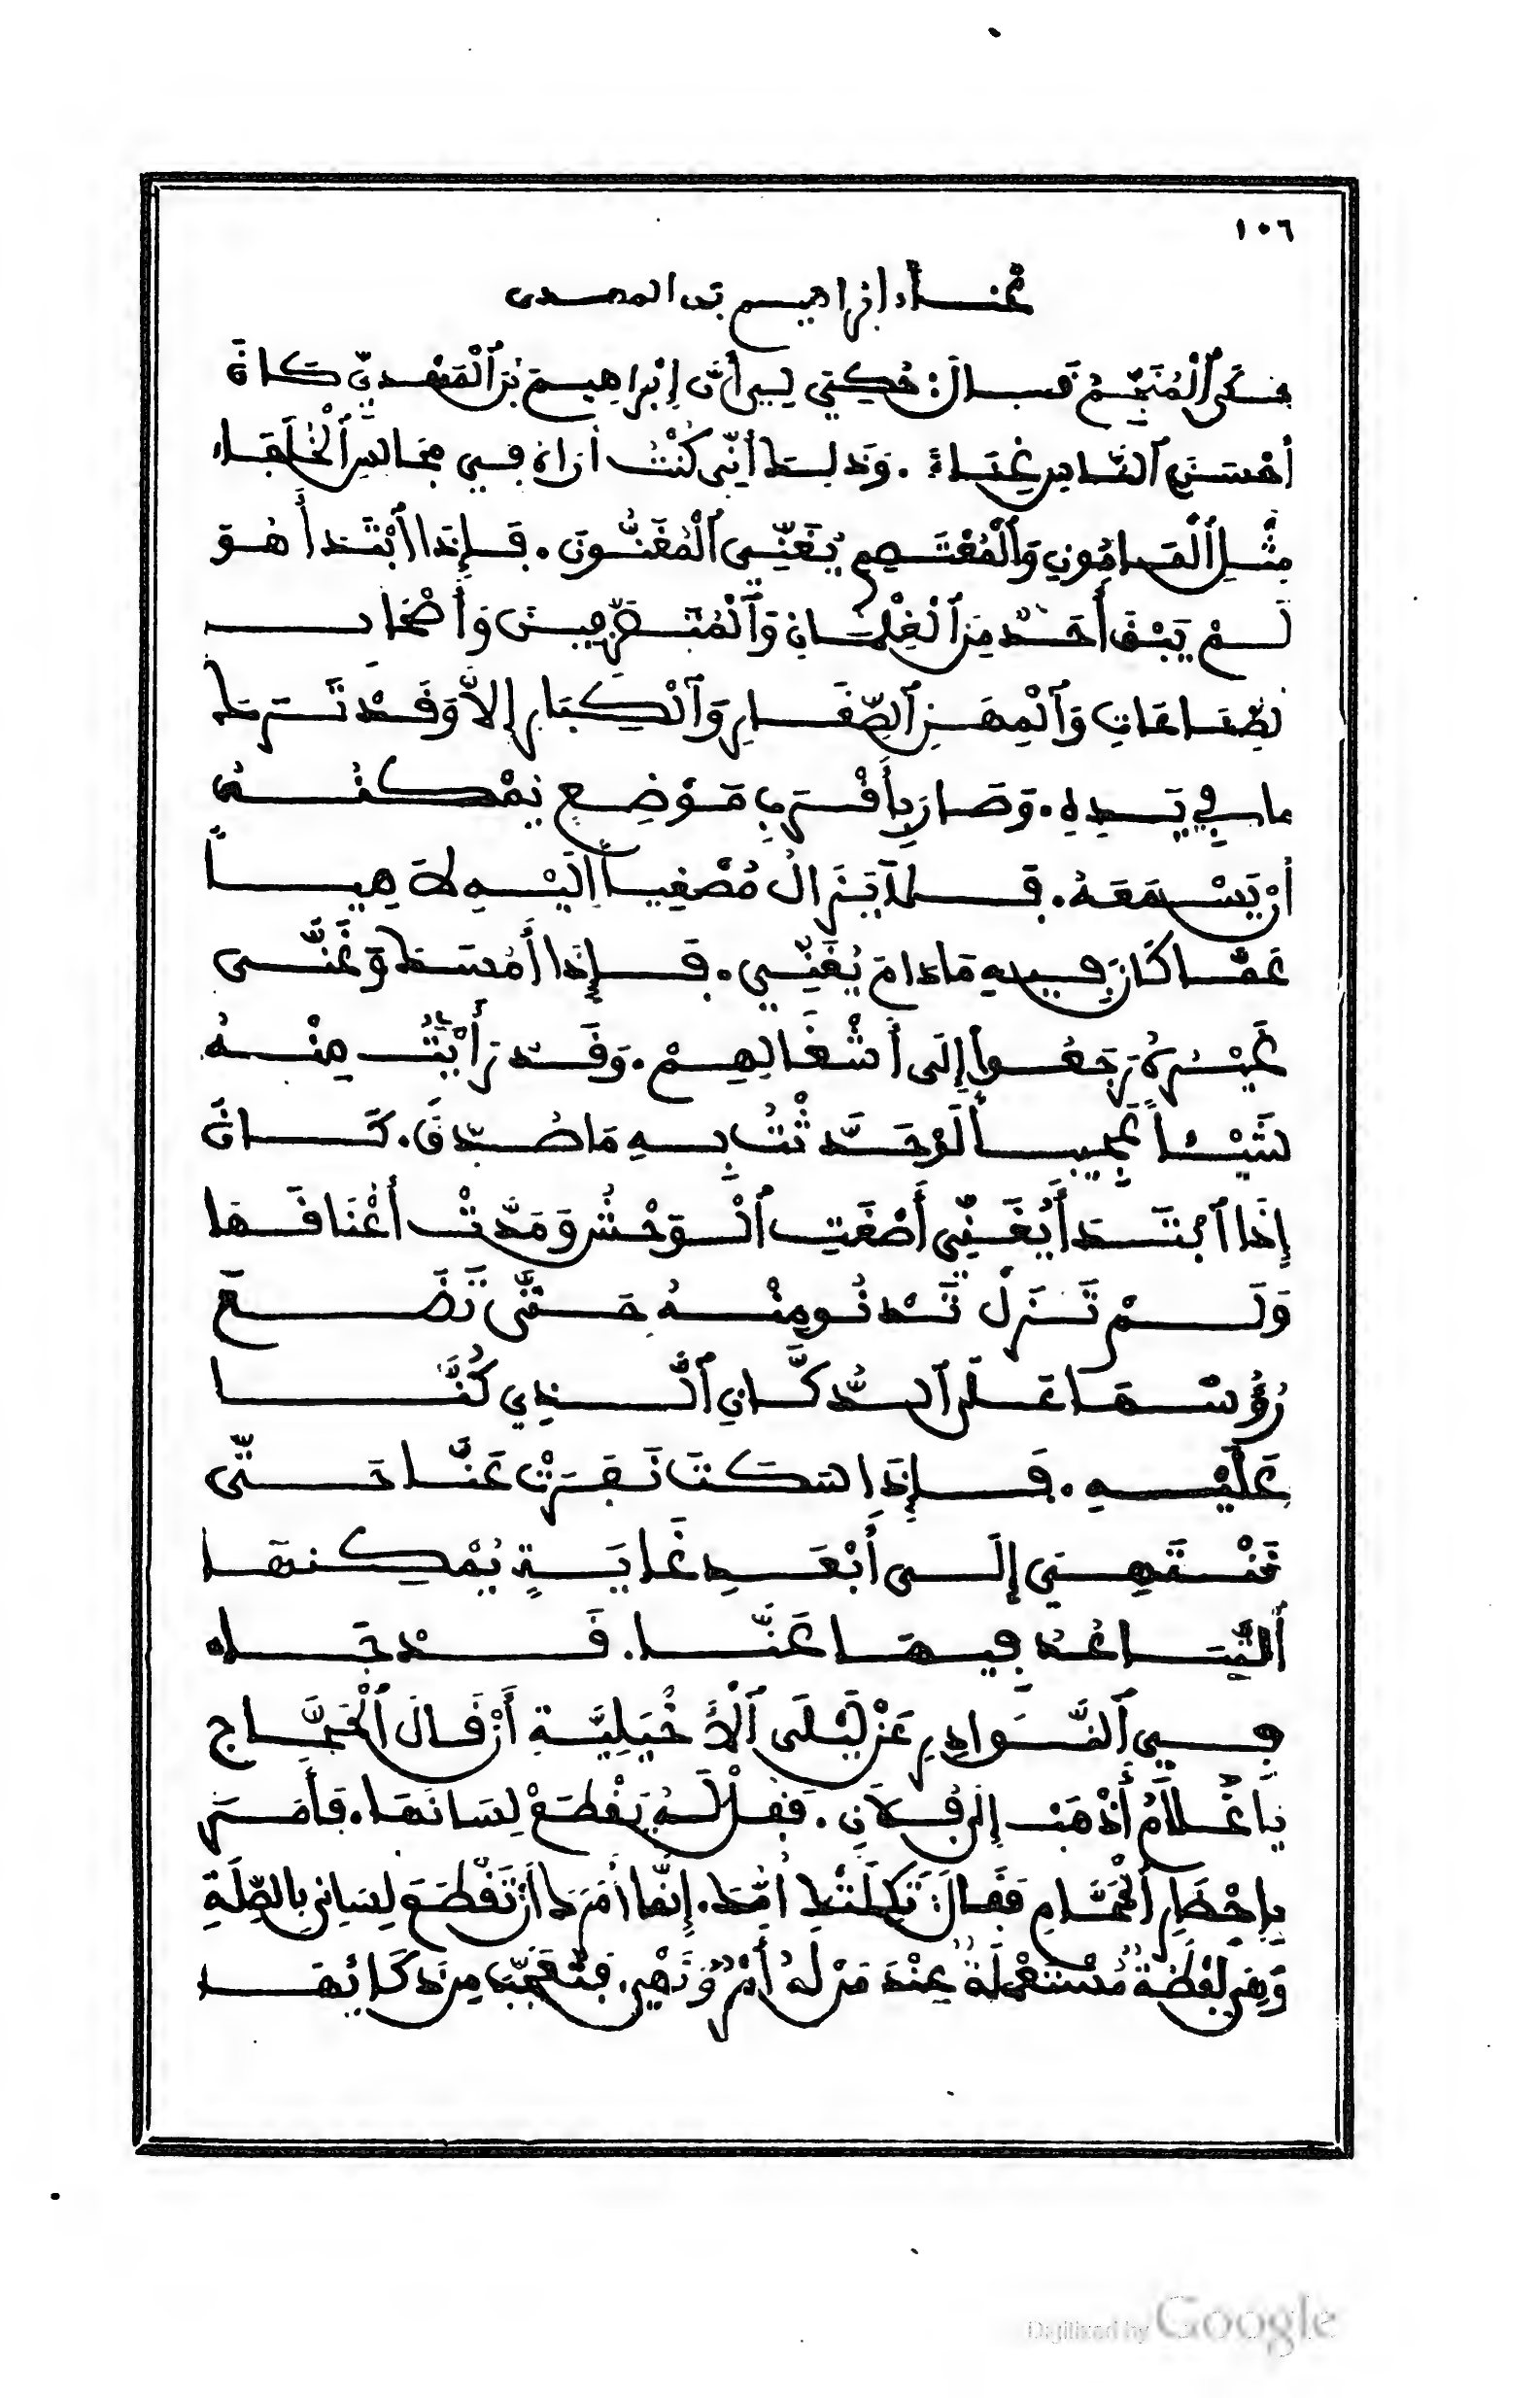 ١٠٦
غناء إبراهيم بن المهدى
حَكَى ٱلْمُنَجِّمُ قَالَ: حُكِيَ لِي أَنَّ إِبْرَاهِيمَ بْنَ ٱلْمَهْدِيِّ كَانَ
أَحْسَنَ ٱلنَّاسِ غِنَاءً. وَذلِكَ أَنِّي كُنْتُ أَرَاهُ فِي مَجَالِسِ ٱلْخُلَفَاءِ
مِثْلِ ٱلْمَامُونِ وَٱلْمُعْتَصِمِ يُغَنِّي ٱلْمُغَنُّونَ. فَإِذَا ٱبْتَدَأَ هُوَ
لَمْ يَبْقَ أَحَدٌ مِنَ ٱلْغِلْمَانِ وَٱلْمُتَصَرِّفِينَ وَأَصْحَابِ
ٱلصِّنَاعَاتِ وَٱلْمِهَنِ ٱلصِّغَارِ وَٱلْكِبَارِ إِلاَّ وَقَدْ تَرَكَ
مَا فِي يَدِهِ. وَصَارَ بِأَقْرَبِ مَوْضِعٍ يُمْكِنُهُ
أَنْ يَسْمَعَهُ. فَلَا يَزَالُ مُصْغِياً إِلَيْهِ لَاهِياً
عَمَّا كَانَ فِيهِ مَا دَامَ يُغَنِّي. فَإِذَا أَمْسَكَ وَغَنَّى
غَيْرُهُ رَجَعُوا إِلَى أَشْغَالِهِمْ. وَقَدْ رَأَيْتُ مِنْهُ
شَيْئاً عَجِيباً لَوْ حَدَّثْتُ بِهِ مَا صُدِّقَ. كَانَ
إِذَا ٱبْتَدَأَ يُغَنِّي أَصْغَتِ ٱلْوَحْشُ وَمَدَّتْ أَعْنَاقَهَا
وَلَمْ تَزَلْ تَدْنُو مِنْهُ حَتَّى تَضَعَ
رُؤُسَهَا عَلَى ٱلدُّكَّانِ ٱلَّذِي كُنَّا
عَلَيْهِ. فَإِذَا سَكَتَ نَفَرَتْ عَنَّا حَتَّى
تَنْتَهِيَ إِلَى أَبْعَدِ غَايَةٍ يُمْكِنهَا
ٱلتَّبَاعُدُ فِيهَا عَنَّا. قَدْ جَاء
فِي ٱلنَّوَادِرِ عَنْ لَيْلَى ٱلْأَخْيَلِيَّةِ أَنْ قَالَ ٱلْحَجَّاج
يَا غُلاَمُ أذْهَبْ إِلَى فُلاَنٍ. فَقُلْ لَهُ يَقْطَعْ لِسَانَهَا. فَأَمَرَ
بِإِحْضَارِ ٱلْحَجَّامِ فَقَالَ: ثَكِلَتْكَ أُمُّكَ. إِنَّمَا أَمَرَكَ أَنْ تَقْطَعَ لِسَانِي بِالصِّلَةِ
وَهِيَ لَفْظَةٌ مُسْتَعْمَلَةٌ عِنْدَ مَنْ لَهُ أَمْرٌ وَنَهْيٌ. فَتَعَجَّبَ مِنْ ذَكَائِهَا
Digitized by Google